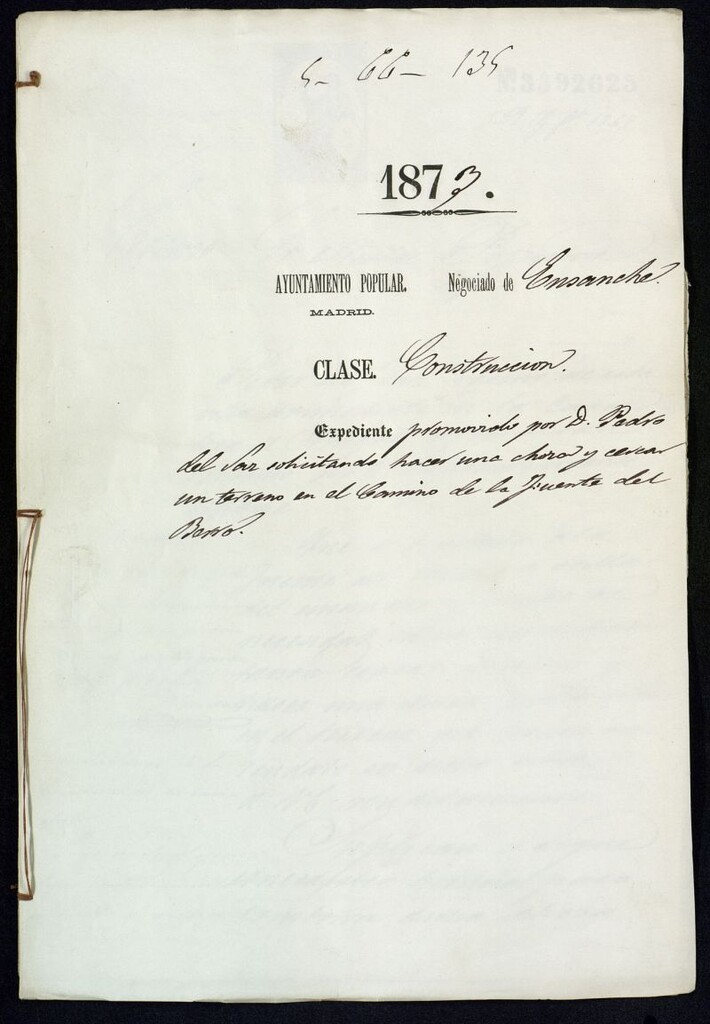 5- 66- 135
M3392625
1873.
AYUNTAMIENTO POPULAR. Negociado de Ensanche.
MADRID.
CLASE. Construccion.
Expediente promovido por D. Pedro
del Saz solicitando hacer una choza y cercar
un terreno en el Camino de la Fuente del
Berro.